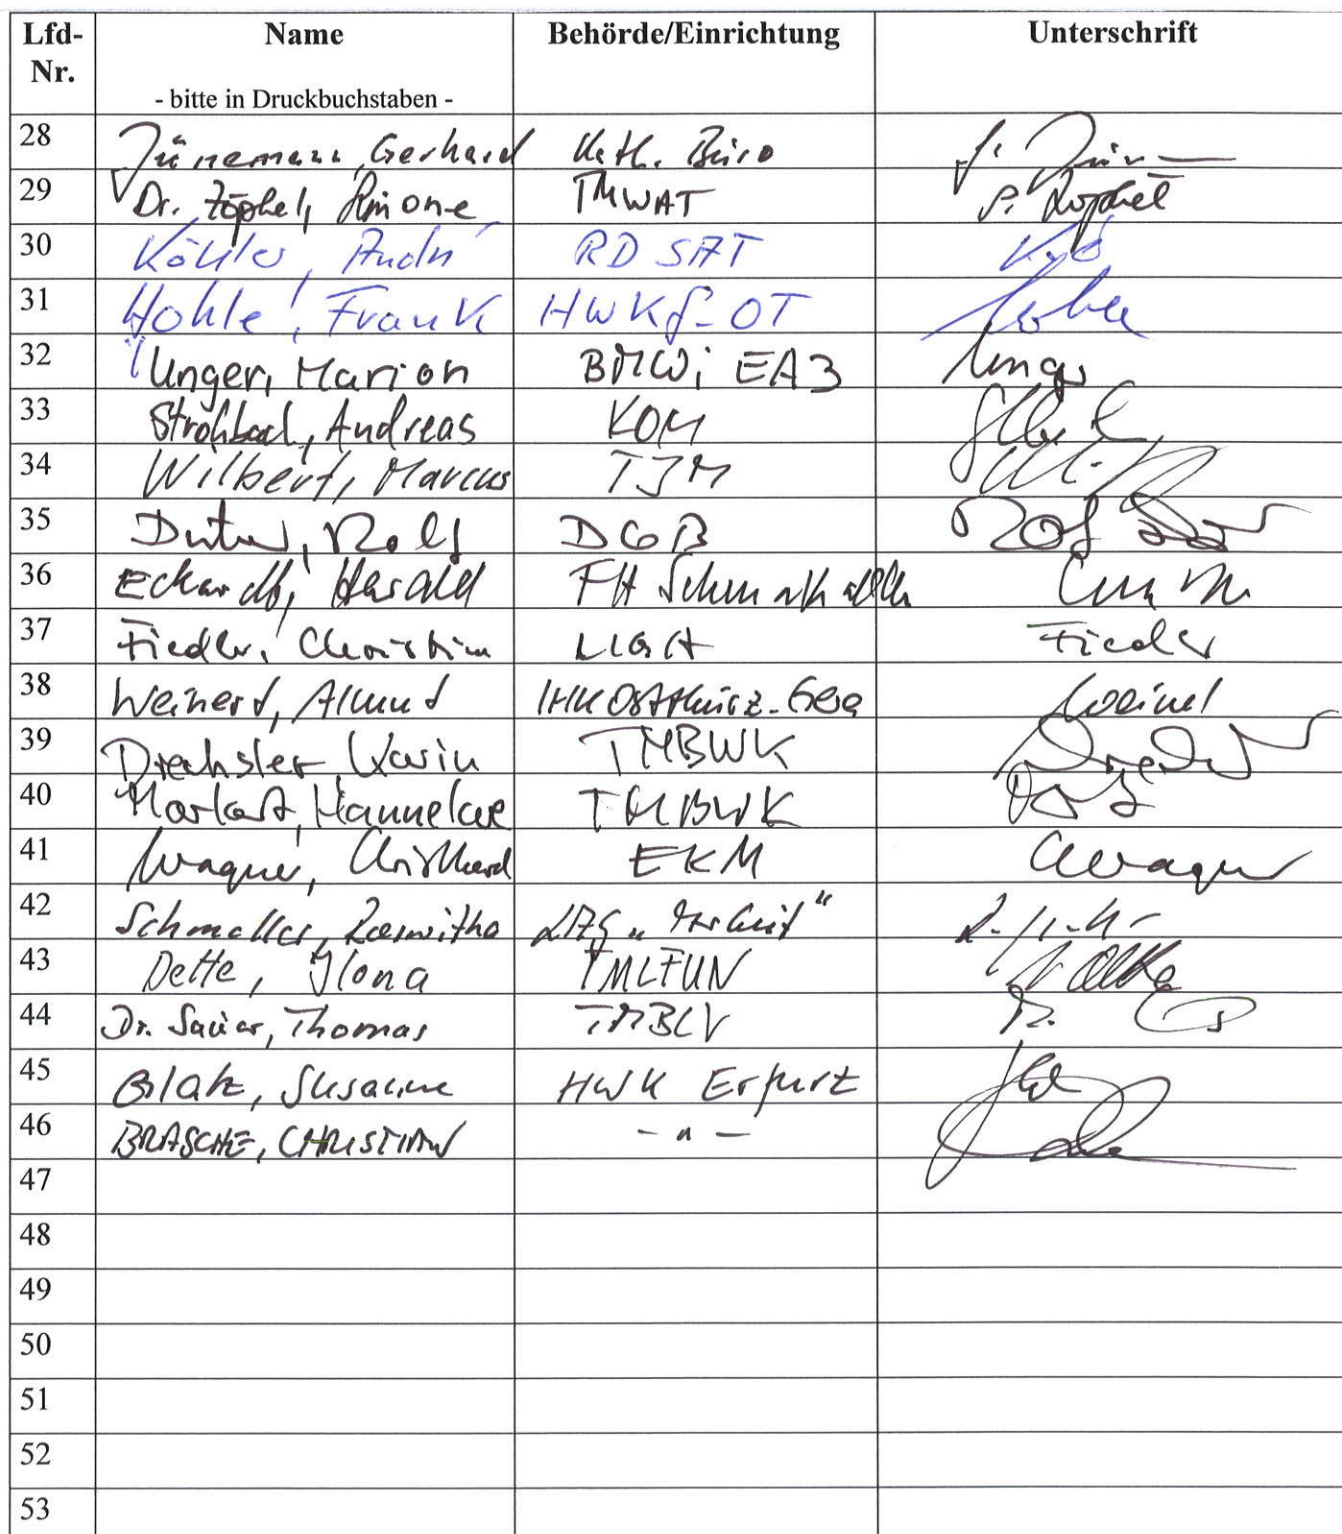 Lfd-Nr. Name Behörde/Einrichtung Unterschrift
- bitte in Druckbuchstaben -
28 Jünemann, Gerhard Kath. Büro
29 Dr. Zöphel, Simone TMWAT S. Zöphel
30 Köhler, André RD SAT
31 Hohle, Frank HWK f. OT
32 Unger, Marion BMWi EA3 Unger
33 Strohbach, Andreas KOM
34 Wilbert, Marcus TJM
35 Rolf DGB
36 Eckardt, Harald FH Schmalkalden
37 Fiedler, Christin LIGA Fiedler
38 Weinert, Almut IHK Ostthür.z. Gera Weinert
39 Drechsler, Karin TMBWK
40 Markert, Hannelore TMBWK
41 Wagner, Christhard EKM CWagner
42 Schmeller, Roswitha LAG „Arbeit“
43 Dette, Ilona TMLFUN
44 Dr. Sauer, Thomas TMBLV
45 Blatz, Susanne HWK Erfurt
46 BRASCHE, CHRISTIAN - " -
47
48
49
50
51
52
53